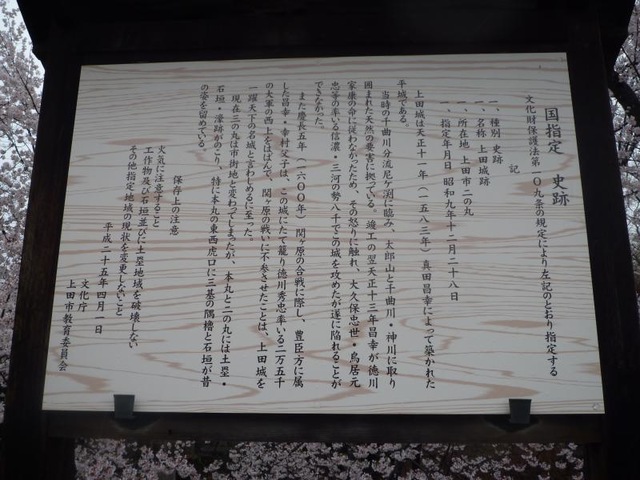 国指定 史跡
文化財保護法第一〇九条の規定により左記のとおり指定する
記
一、種別 史跡
一、名称 上田城跡
一、所在地 上田市二の丸
一、指定年月日 昭和九年十二月二十八日
上田城は天正十一年(一五八三年)真田昌幸によって築かれた
平城である。
当時の千曲川分流尼ヶ渕に臨み、太郎山と千曲川・神川に取り
囲まれた天然の要害に拠っている。適工の翌天正十三年昌幸が徳川
家康の命に従わなかったため、その怒りに触れ、大久保忠世・鳥居元
忠等の率いる信濃・三河の勢八千でこの城を攻めたが遂に陥れることが
できなかった。
また慶長五年(一六〇〇年)関ヶ原の合戦に際し、豊臣方に属
した昌幸・幸村父子は、この城にたて籠り、徳川秀忠率いる三万五千
の大軍の西上をはばんで、関ヶ原の戦いに不参させたことは、上田城を
一躍天下の名城と言わしめるに至った。
現在三の丸は市街地と変わってしまったが、本丸と二の丸には土塁・
石垣・濠跡がのこり、特に本丸の東西虎口に三基の隅櫓と石垣が昔
の姿を留めている。
保存上の注意
火気に注意すること
工作物及び石垣並びに土塁地域を破壊しない
その他指定地域の現状を変更しないこと
平成二十五年四月一日
文化庁
上田市教育委員会